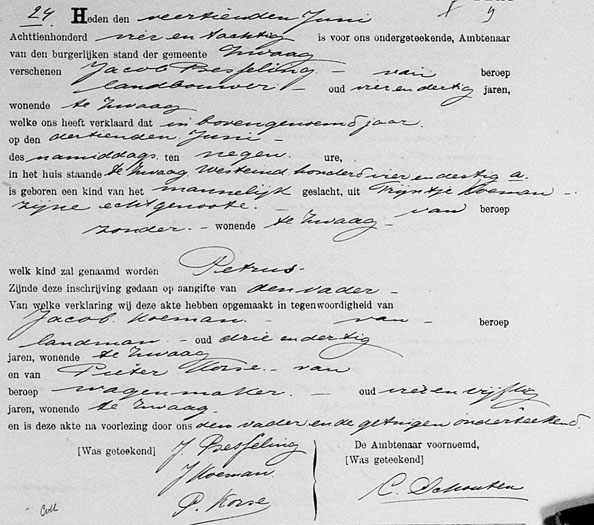 24 Heden den veertienden Juni
Achttienhonderd vier en tachtig is voor ons ondergeteekende, Ambtenaar
van den burgerlijken stand der gemeente Zwaag
verschenen Jacob Besseling – van – beroep
landbouwer – oud vier en dertig jaren,
wonende te Zwaag
welke ons heeft verklaard dat in bovengenoemd jaar
op den dertienden Juni –
des namiddags ten negen ure,
in het huis staande te Zwaag Westeind honderd vier en dertig a.
is geboren een kind van het mannelijk geslacht, uit Trijntje Koeman –
zijne echtgenoote – van beroep
zonder – wonende te Zwaag –
welk kind zal genaamd worden Petrus
Zijnde deze inschrijving gedaan op aangifte van den vader –
Van welke verklaring wij deze akte hebben opgemaakt in tegenwoordigheid van
Jacob Koeman – van – beroep
landman – oud drie en dertig
jaren, wonende te Zwaag
en van Pieter Korse – van
beroep wagenmaker – oud vier en vijftig
jaren, wonende te Zwaag
en is deze akte na voorlezing door ons den vader en de getuigen onderteekend
[Was geteekend] J. Besseling
J Koeman
P. Korse
De Ambtenaar voornoemd,
[Was geteekend]
C. Schouten